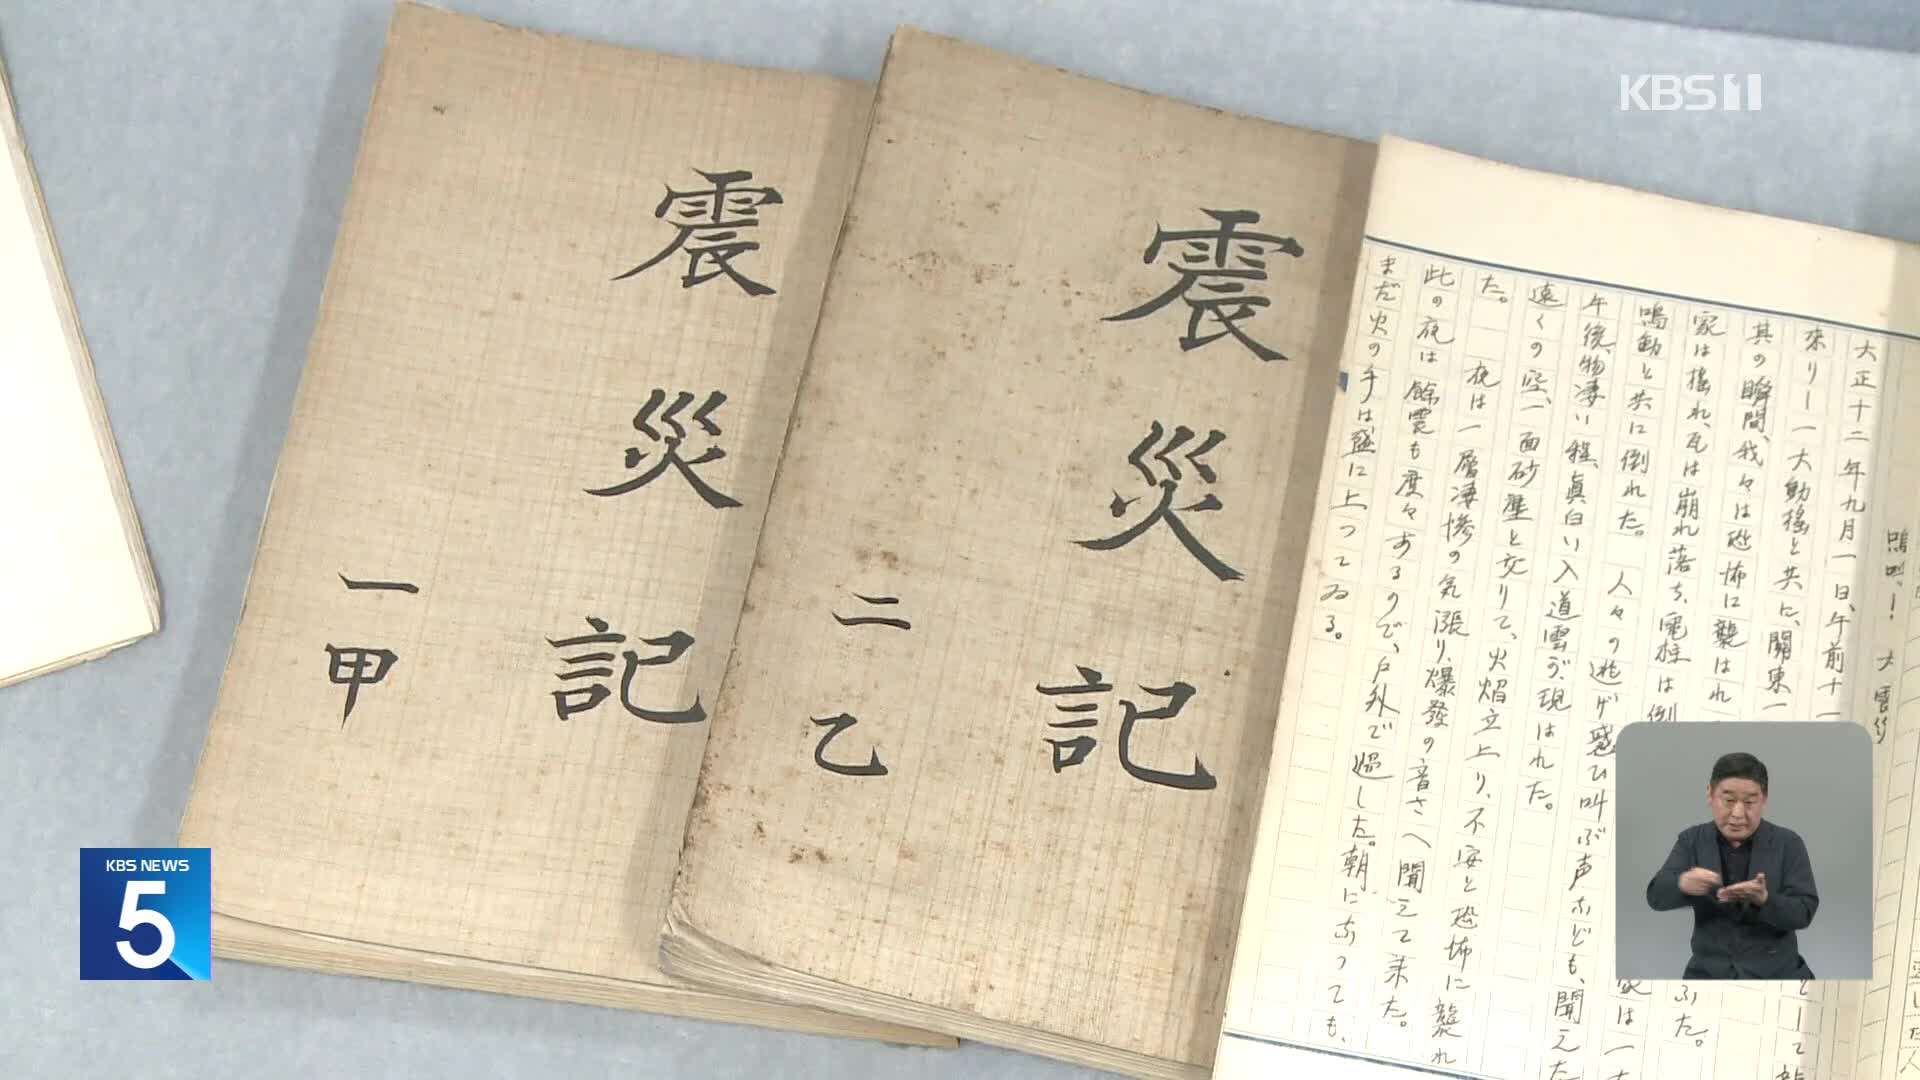 KBS 1
震災記
一甲
震災記
二乙
大正十二年九月一日、午前十一
来り一大動揺と共に、関東一
其の瞬間、我々は恐怖に襲はれ
家は揺れ、瓦は崩れ落ち、電柱は倒
鳴動と共に倒れた。 人々の逃げ惑ひ叫ぶ声なども、聞えた
午後、物凄い程、眞白い入道雲が、現はれた。
遠くの空、一面砂塵と交りて、火焔立上り、不安と恐怖に襲れ
た。 夜は一層凄惨の気漲り、爆發の音さへ聞えて来た。
此の夜は餘震も度々あるので、戸外で過した。朝になっても、
まだ火の手は盛に上ってゐる。
KBS NEWS
5